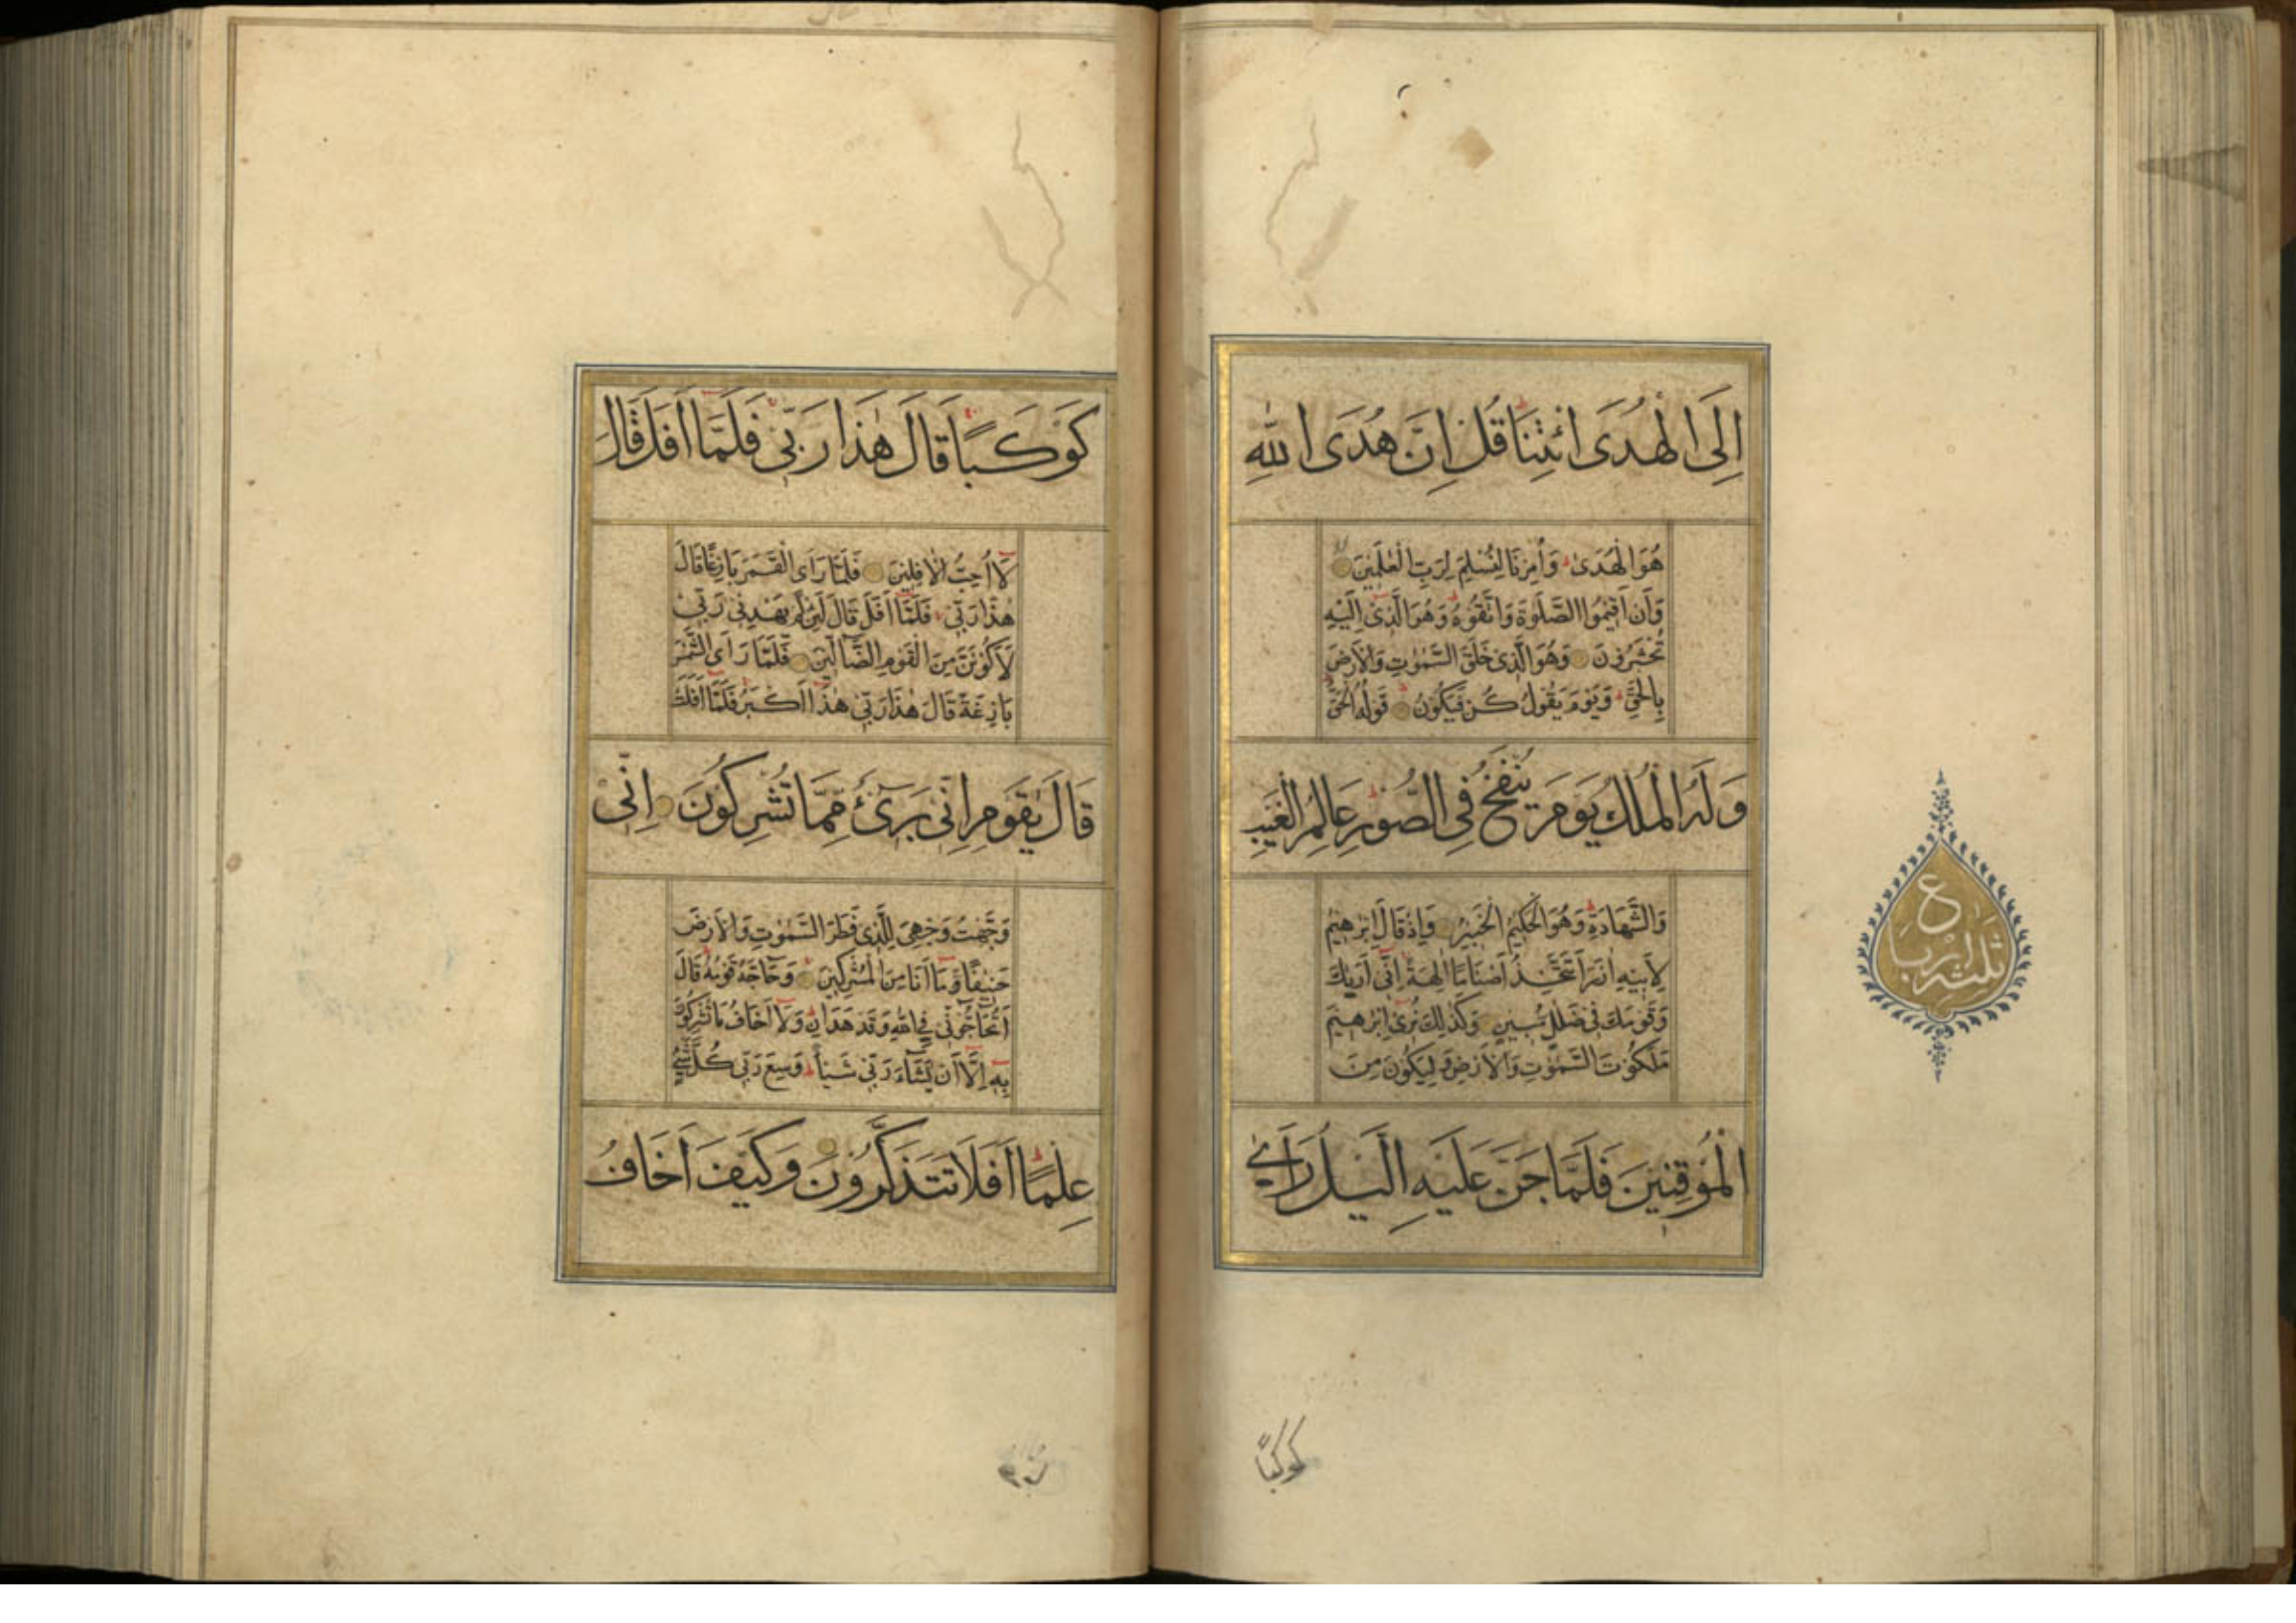 اِلَى الْهُدَى ائْتِنَا قُلْ اِنَّ هُدَى اللهِ
هُوَ الْهُدَىٰ وَاُمِرْنَا لِنُسْلِمَ لِرَبِّ الْعٰلَمِيْنَ
وَاَنْ اَقِيْمُوا الصَّلٰوةَ وَاتَّقُوْهُ وَهُوَ الَّذِىْ اِلَيْهِ
تُحْشَرُوْنَ وَهُوَ الَّذِىْ خَلَقَ السَّمٰوٰتِ وَالْاَرْضَ
بِالْحَقِّ وَيَوْمَ يَقُوْلُ كُنْ فَيَكُوْنُ قَوْلُهُ الْحَقُّ
وَلَهُ الْمُلْكُ يَوْمَ يُنْفَخُ فِى الصُّوْرِ عَالِمُ الْغَيْبِ
وَالشَّهَادَةِ وَهُوَ الْحَكِيْمُ الْخَبِيْرُ وَاِذْ قَالَ اِبْرٰهِيْمُ
لِاَبِيْهِ اٰزَرَ اَتَتَّخِذُ اَصْنَامًا اٰلِهَةً اِنِّىْ اَرٰيكَ
وَقَوْمَكَ فِىْ ضَلٰلٍ مُبِيْنٍ وَكَذٰلِكَ نُرِىْ اِبْرٰهِيْمَ
مَلَكُوْتَ السَّمٰوٰتِ وَالْاَرْضِ وَلِيَكُوْنَ مِنَ
الْمُوْقِنِيْنَ فَلَمَّا جَنَّ عَلَيْهِ الَّيْلُ رَاٰى
كوكبًا
ثلثة ارباع
كَوْكَبًا قَالَ هٰذَا رَبِّىْ فَلَمَّا اَفَلَ قَالَ
لَا اُحِبُّ الْاٰفِلِيْنَ فَلَمَّا رَاَى الْقَمَرَ بَازِغًا قَالَ
هٰذَا رَبِّىْ فَلَمَّا اَفَلَ قَالَ لَئِنْ لَمْ يَهْدِنِىْ رَبِّىْ
لَاَكُوْنَنَّ مِنَ الْقَوْمِ الضَّالِّيْنَ فَلَمَّا رَاَى الشَّمْسَ
بَازِغَةً قَالَ هٰذَا رَبِّىْ هٰذَا اَكْبَرُ فَلَمَّا اَفَلَتْ
قَالَ يٰقَوْمِ اِنِّىْ بَرِىْءٌ مِمَّا تُشْرِكُوْنَ اِنِّىْ
وَجَّهْتُ وَجْهِىَ لِلَّذِىْ فَطَرَ السَّمٰوٰتِ وَالْاَرْضَ
حَنِيْفًا وَمَا اَنَا مِنَ الْمُشْرِكِيْنَ وَحَاجَّهُ قَوْمُهُ قَالَ
اَتُحَاجُّوْنِّىْ فِى اللهِ وَقَدْ هَدٰىنِ وَلَا اَخَافُ مَا تُشْرِكُوْنَ
بِهٖ اِلَّا اَنْ يَشَاءَ رَبِّىْ شَيْئًا وَسِعَ رَبِّىْ كُلَّ شَىْءٍ
عِلْمًا اَفَلَا تَتَذَكَّرُوْنَ وَكَيْفَ اَخَافُ